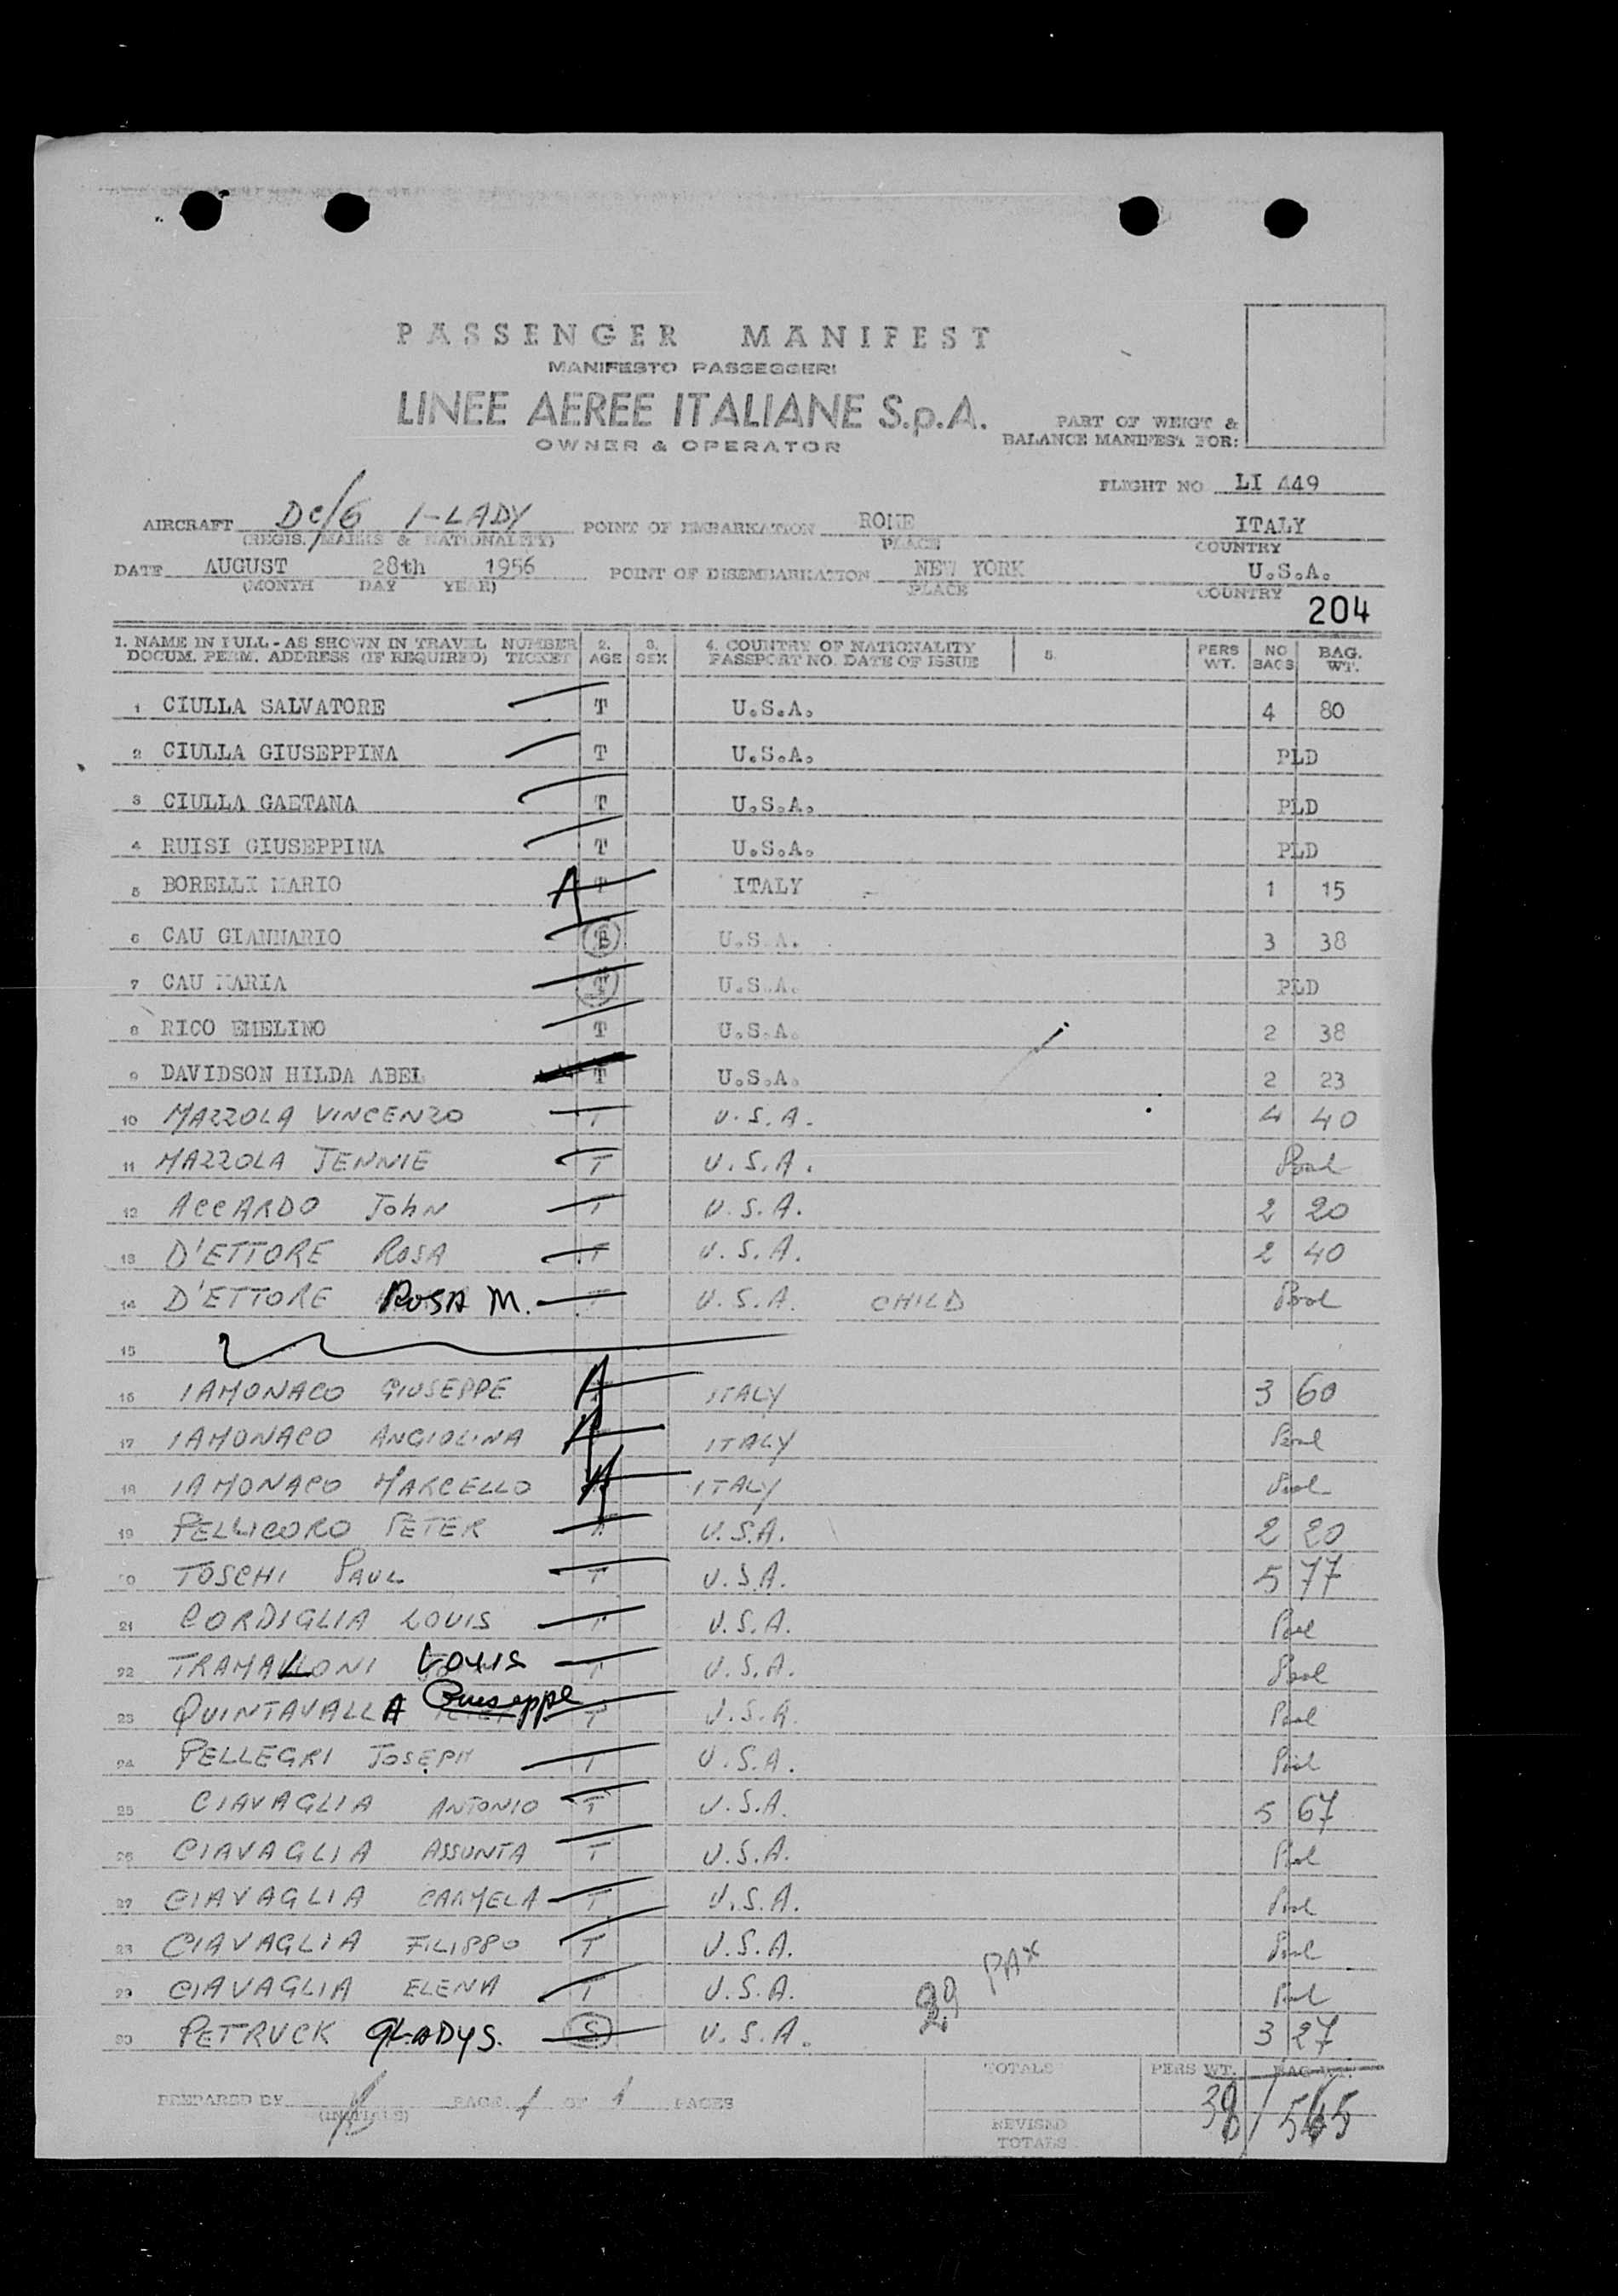 PASSENGER MANIFEST
MANIFESTO PASSEGGERI
LINEE AEREE ITALIANE S.p.A.
OWNER & OPERATOR
PART OF WEIGT &
BALANCE MANIFEST FOR:
FLIGHT NO LI 449
AIRCRAFT Dc/6 I-LADY POINT OF EMBARKATION ROME ITALY
(REGIS. MARKS & NATIONALITY) PLACE COUNTRY
DATE AUGUST 28th 1956 POINT OF DISEMBARKATION NEW YORK U.S.A.
(MONTH DAY YEAR) PLACE COUNTRY
204
1. NAME IN FULL - AS SHOWN IN TRAVEL NUMBER 2. 3. 4. COUNTRY OF NATIONALITY 5. PERS NO BAG.
DOCUM. PERM. ADDRESS (IF REQUIRED) TICKET AGE SEX PASSPORT NO. DATE OF ISSUE WT. BAGS WT.
1 CIULLA SALVATORE T U.S.A. 4 80
2 CIULLA GIUSEPPINA T U.S.A. PLD
3 CIULLA GAETANA T U.S.A. PLD
4 RUISI GIUSEPPINA T U.S.A. PLD
5 BORELLI MARIO A T ITALY 1 15
6 CAU GIANMARIO U.S.A. 3 38
7 CAU MARIA T U.S.A. PLD
8 RICO EMELINO T U.S.A. 2 38
9 DAVIDSON HILDA ABEL T U.S.A. 2 23
10 MAZZOLA VINCENZO T U.S.A. 4 40
11 MAZZOLA JENNIE T U.S.A. Pool
12 ACCARDO John T U.S.A. 2 20
13 D'ETTORE ROSA T U.S.A. 2 40
14 D'ETTORE ROSA M. T U.S.A. CHILD Pool
15
16 IAMONACO GIUSEPPE A ITALY 3 60
17 IAMONACO ANGIOLINA A ITALY Pool
18 IAMONACO MARCELLO A ITALY Pool
19 PELLICORO PETER U.S.A. 2 20
20 TOSCHI PAUL T U.S.A. 5 77
21 CORDIGLIA LOUIS T U.S.A. Pool
22 TRAMALLONI LOUIS T U.S.A. Pool
23 QUINTAVALLA Giuseppe T U.S.A. Pool
24 PELLEGRI JOSEPH T U.S.A. Pool
25 CIAVAGLIA ANTONIO T U.S.A. 5 67
26 CIAVAGLIA ASSUNTA T U.S.A. Pool
27 CIAVAGLIA CARMELA T U.S.A. Pool
28 CIAVAGLIA FILIPPO T U.S.A. Pool
29 CIAVAGLIA ELENA T U.S.A. Pool
30 PETRUCK GLADYS. S U.S.A. 3 27
29 PAX
TOTALS PERS WT. BAG WT.
PREPARED BY PAGE 1 OF 1 PAGES 38/545
(INITIALS) REVISED
TOTALS